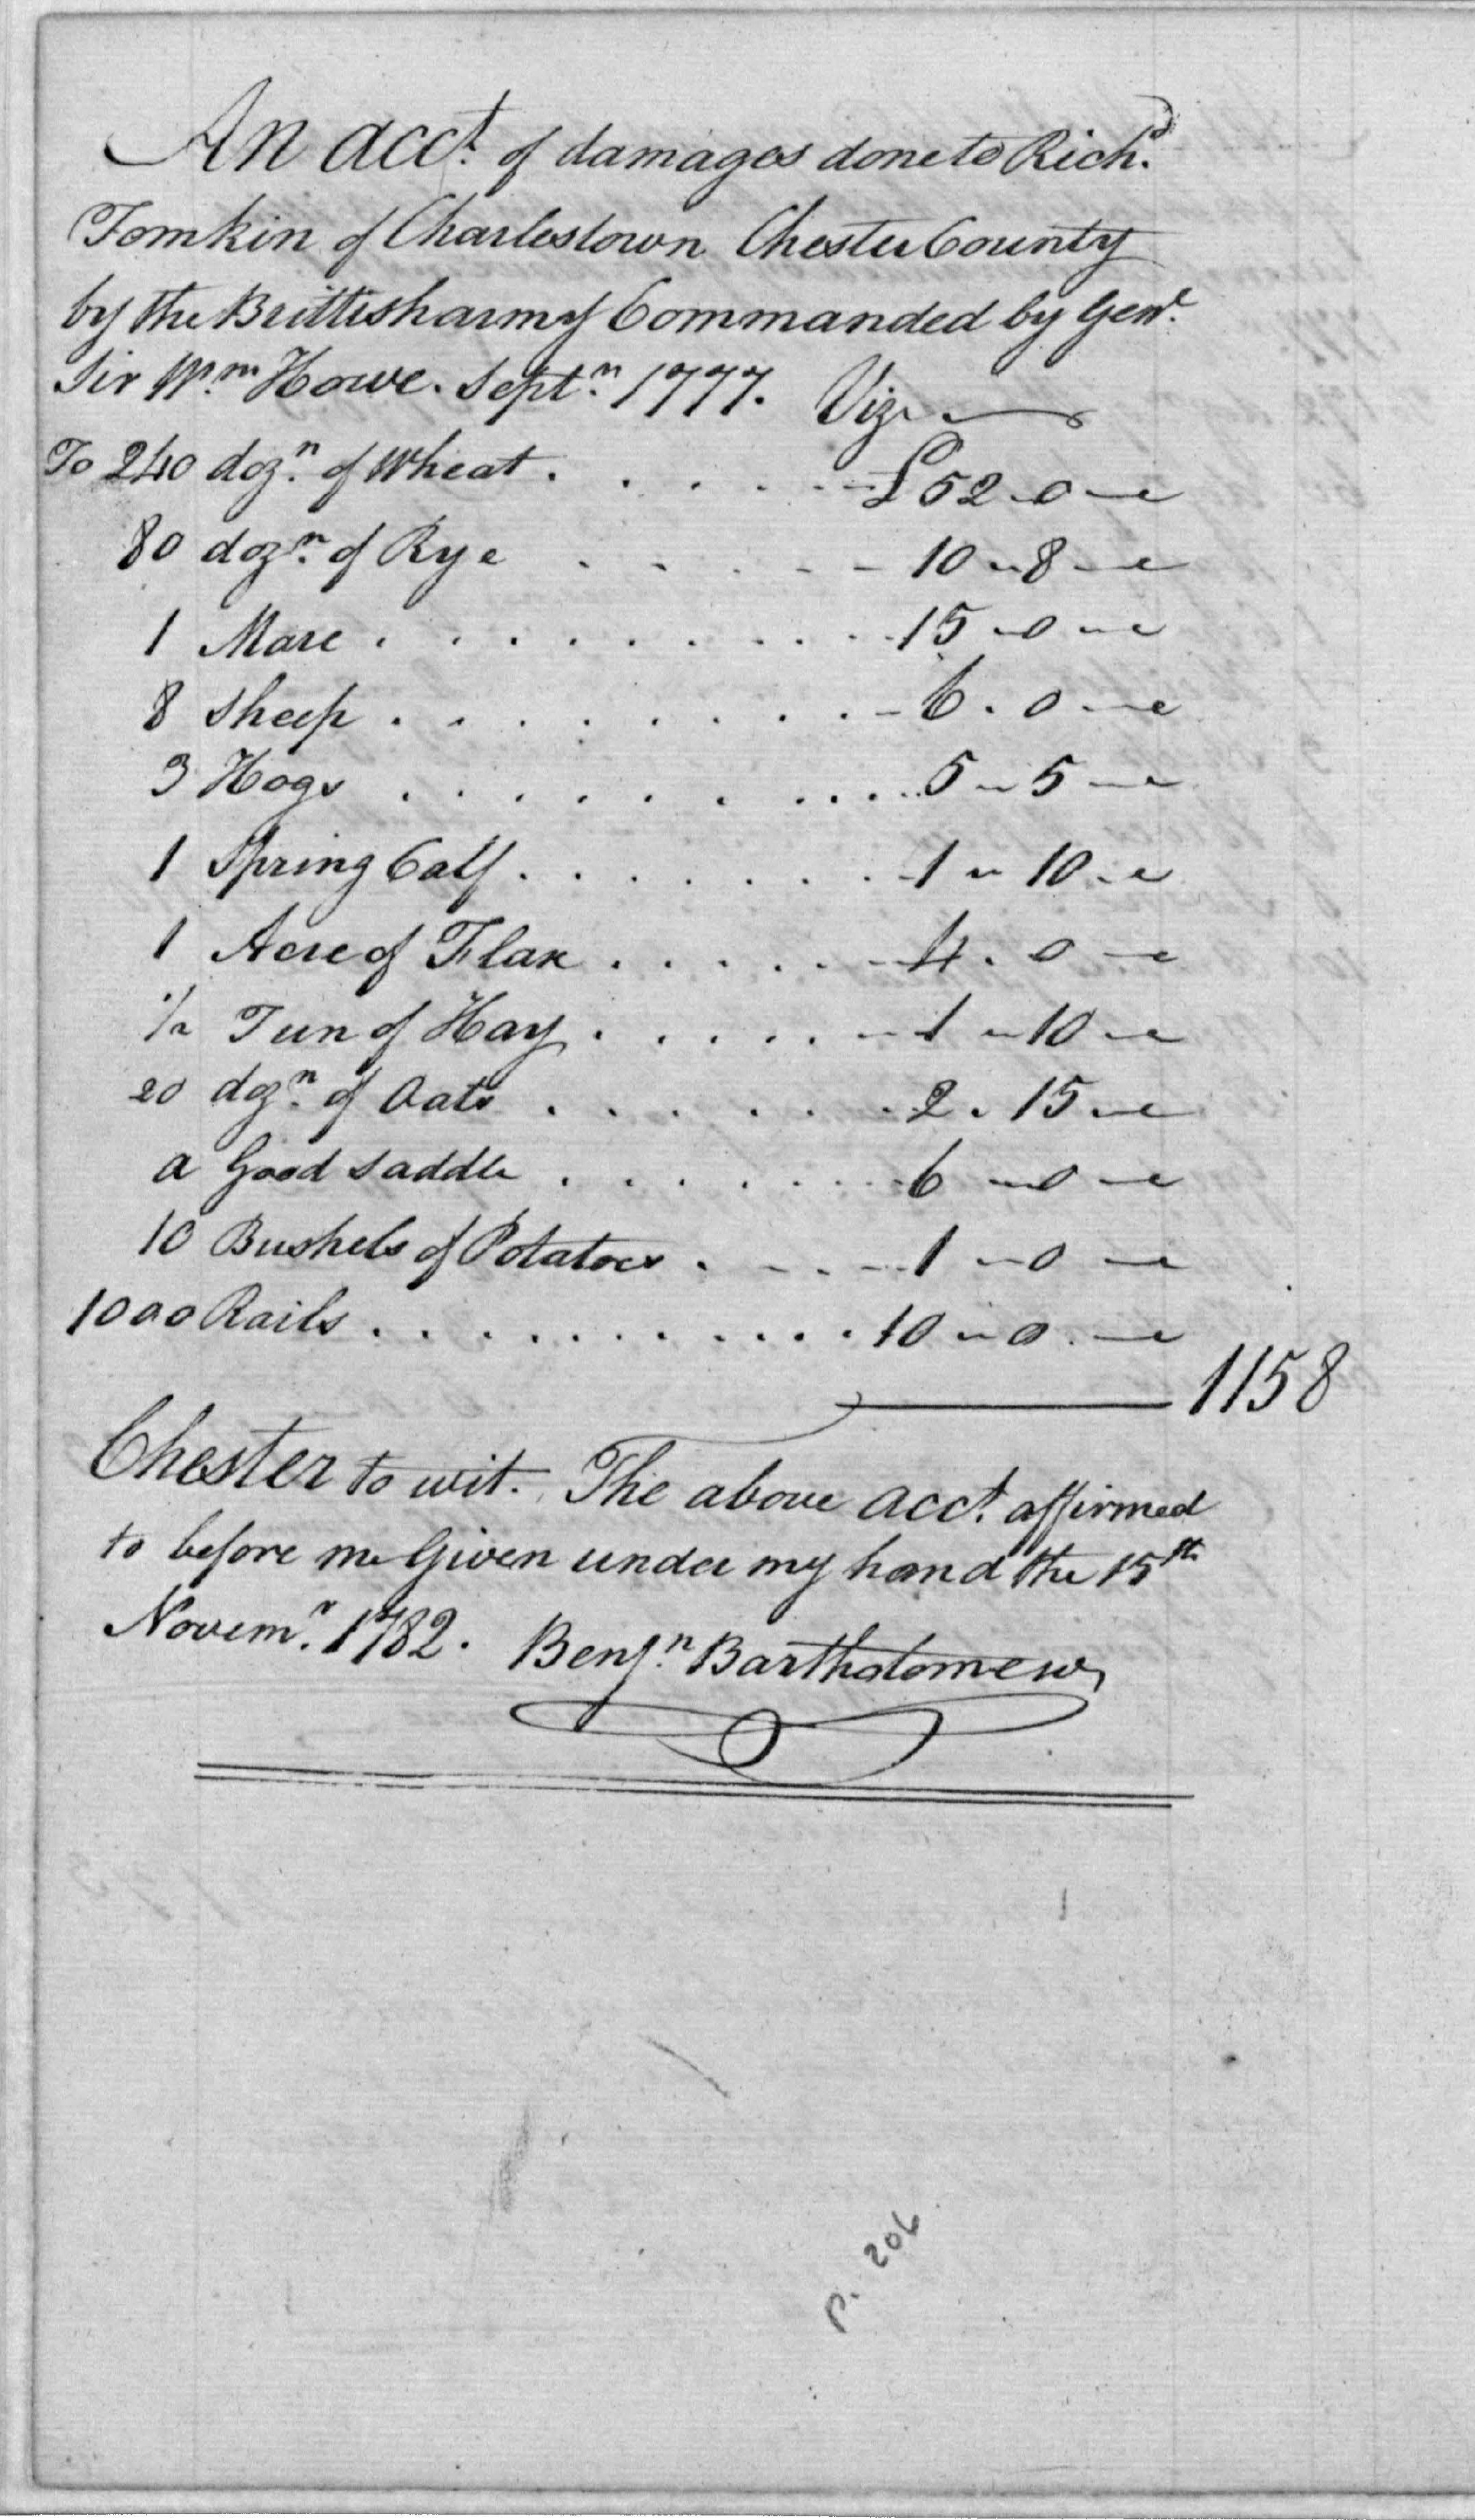 An acct. of damages done to Richd.
Tomkin of Charlestown Chester County
by the Brittish army Commanded by Genl.
Sir Wm. Howe. Septn. 1777. Viz
To 240 dozn. of Wheat . . . . . £52-0-
80 dozn. of Rye . . . . . 10-8-
1 Mare . . . . . . . . 15-0-
8 Sheep . . . . . . . . 6-0-
3 Hogs . . . . . . . . 5-5-
1 Spring Calf . . . . . . . 1-10-
1 Acre of Flax . . . . . 4-0-
1/2 Tun of Hay . . . . . 1-10-
20 dozn. of Oats . . . . . . 2-15-
a Good Saddle . . . . . . 6-0-
10 Bushels of Potatoes . . . . 1-0-
1000 Rails . . . . . . . . . . 10-0-
1158
Chester to wit. The above acct. affirmed
to before me Given under my hand the 15th
Novemr. 1782. Benjn. Bartholomew
P. 206